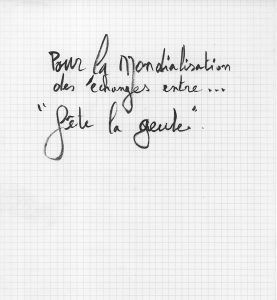 Pour la Mondialisation
des échanges entre...
"fête la geule".